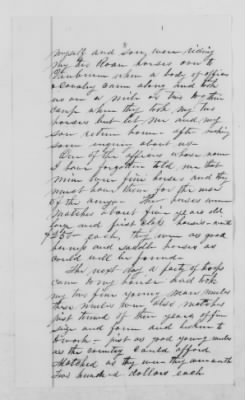 myself and son, were riding
my two Roan horses over to
when a body of officers
& Cavalry came along and took
us on a mile or two to their
camp when they took my two
horses but let me and my
son return home after making
some enquiry about us.
One of the officers whose name
I have forgotten told me that
mine were fine horses and they
must have them for the use
of the army. The horses were
matches about five years old
large and first class horses worth
each, they were as good
and saddle horses as
could well be found.
The next day a party of troops
came to my house and took
my two fine young mare mules
These mules were also matches
just turned of three years of fine
size and form and broken to
work - just as good young mules
as the country could afford
Matched as they were they were worth
two hundred dollars each